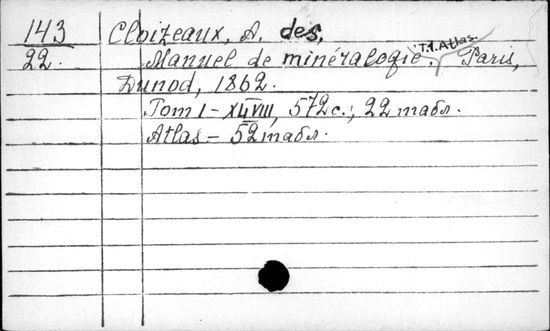 143 Cloizeaux, A. des.
22. Manuel de minéralogie. T.1. Atlas. Paris,
Dunod, 1862.
Tom I - XLVIII, 572 c.; 22 табл.
Atlas - 52 табл.